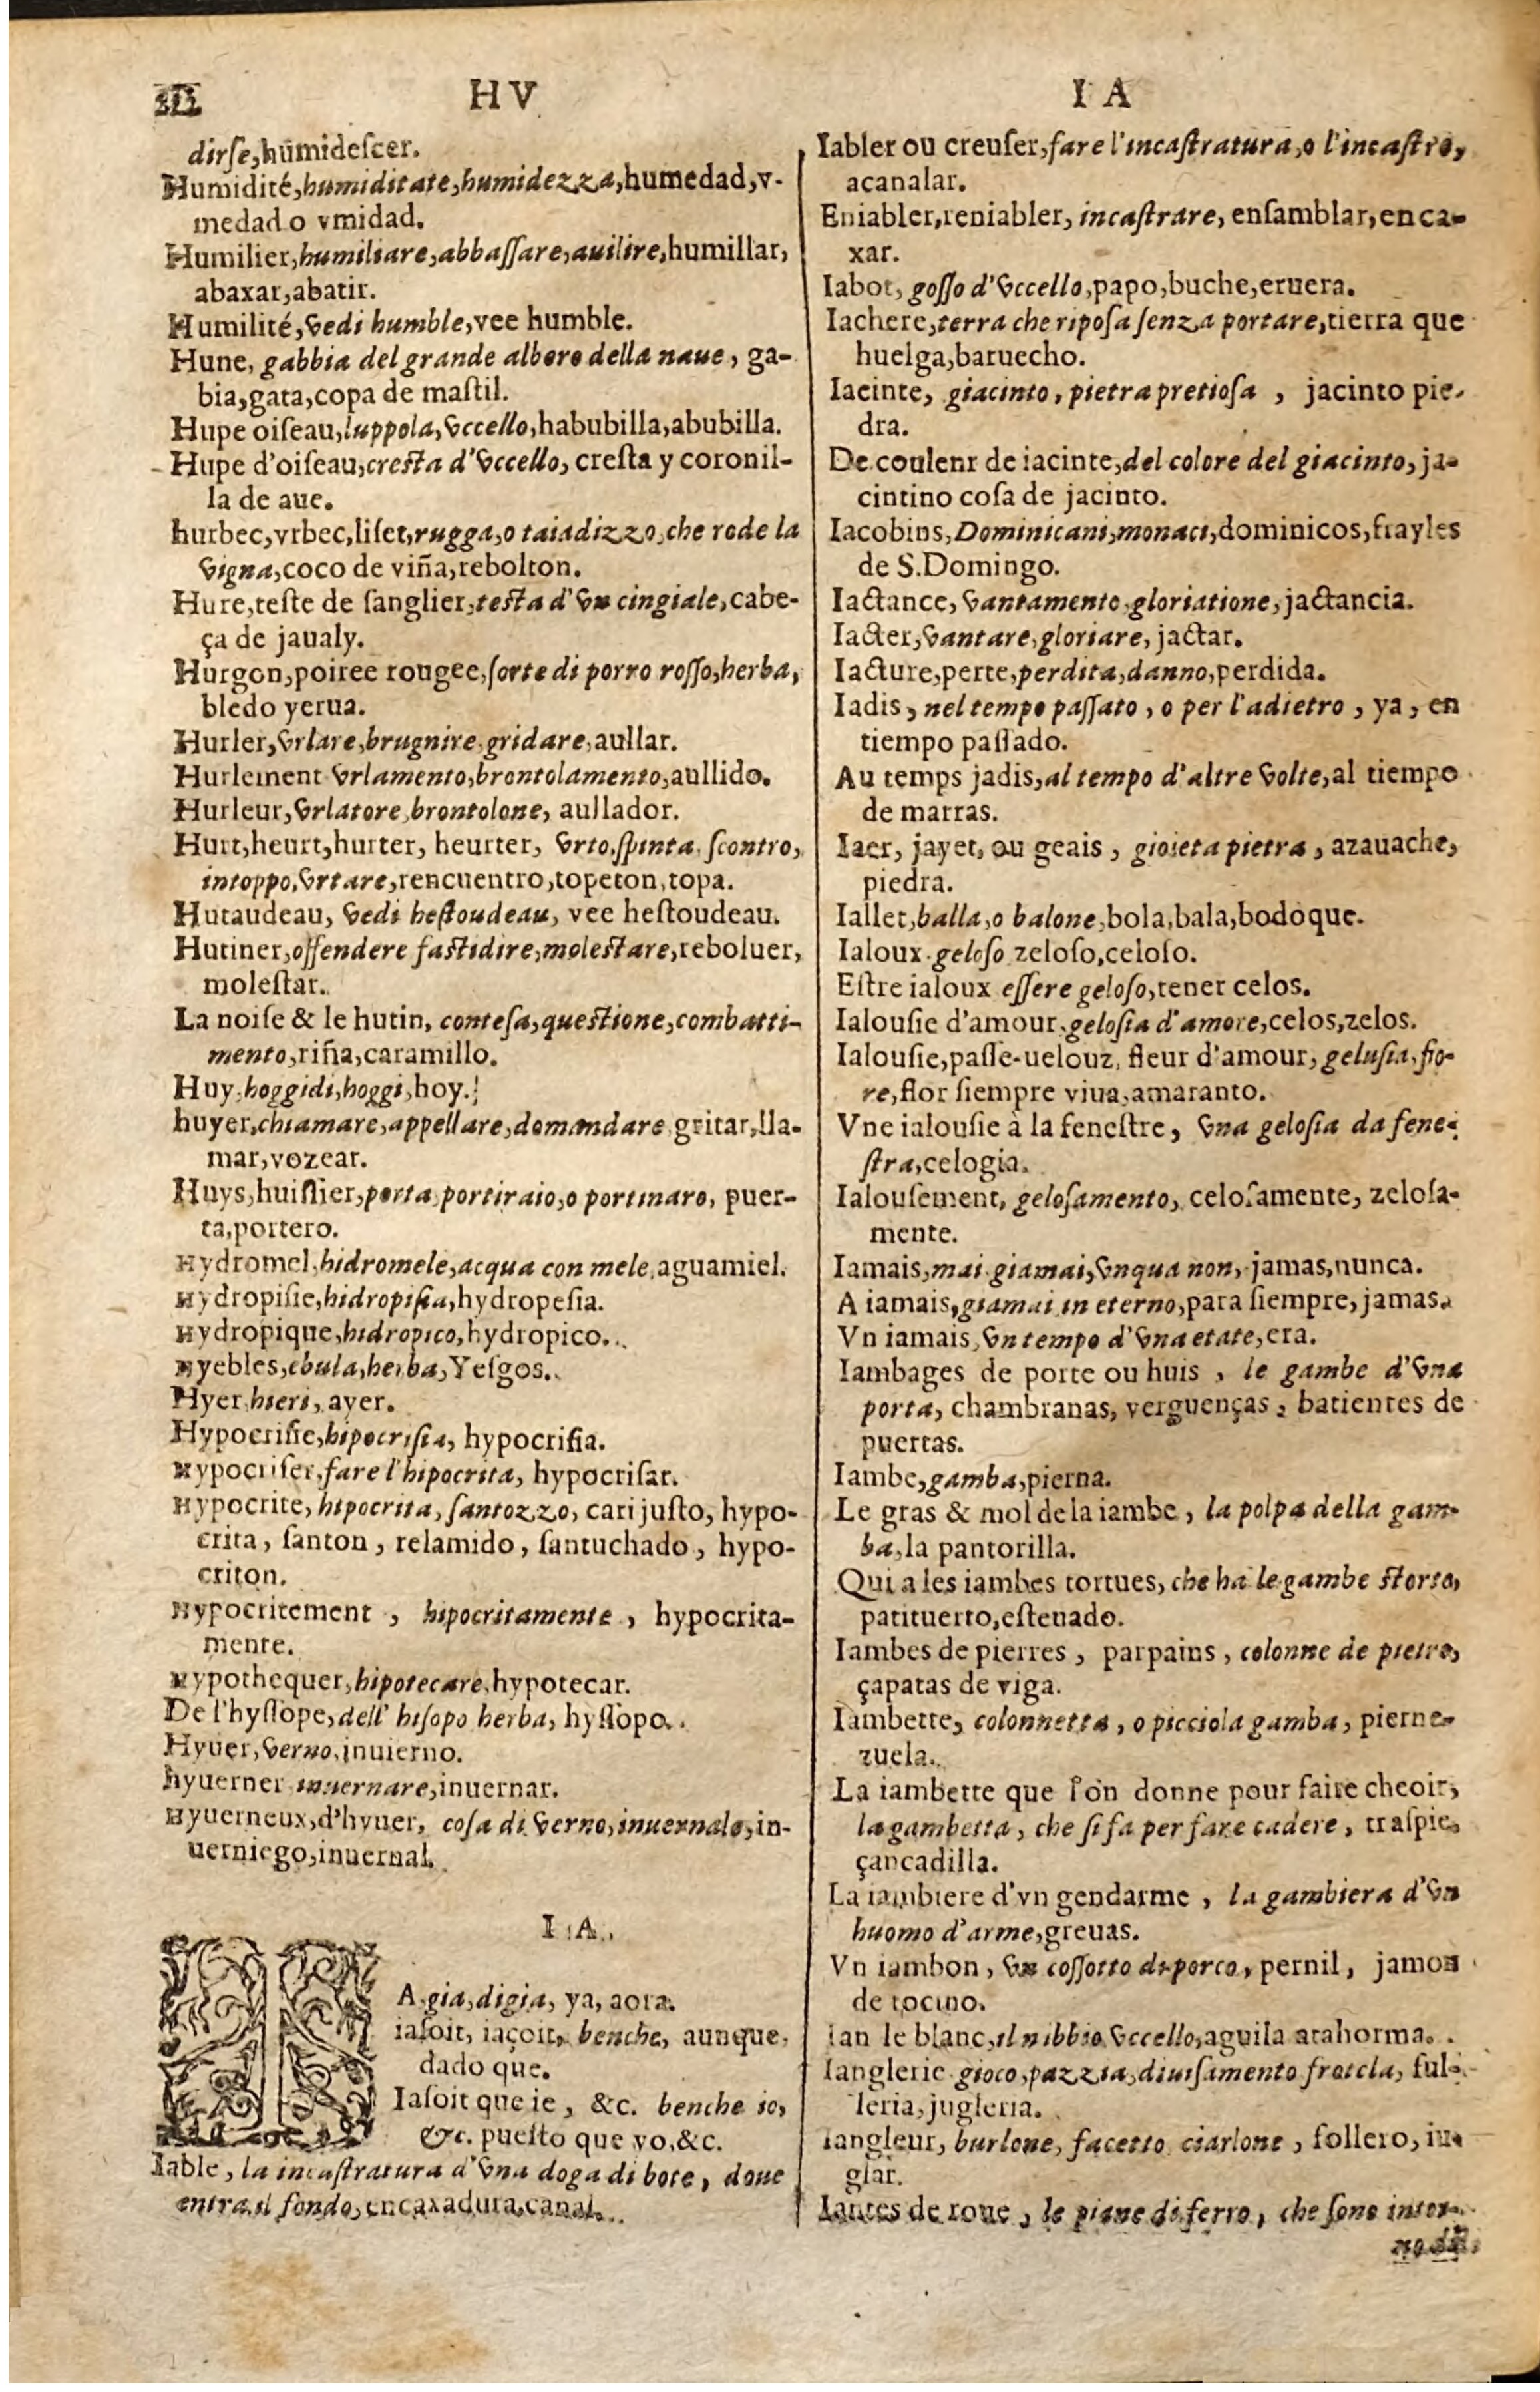 HV
dirſe,humideſcer.
Humidité,humiditate,humidezza,humedad,v-
medad o vmidad.
Humilier,humiliare,abbaſſare,auilire,humillar,
abaxar,abatir.
Humilité,vedi humble,vee humble.
Hune, gabbia del grande albore della naue, ga-
bia,gata,copa de maſtil.
Hupe oiſeau,luppola,vccello,habubilla,abubilla.
Hupe d'oiſeau,creſta d'vccello, creſta y coronil-
la de aue.
hurbec,vrbec,liſet,rugga,o taiadizzo,che rode la
vigna,coco de viña,rebolton.
Hure,teſte de ſanglier,teſta d'vn cingiale,cabe-
ça de jaualy.
Hurgon,poiree rougee,ſorte di porro roſſo,herba,
bledo yerua.
Hurler,vrlare,brugnire,gridare,aullar.
Hurlement vrlamento,brontolamento,aullido.
Hurleur,vrlatore,brontolone, aullador.
Hurt,heurt,hurter, heurter, vrto,ſpinta, ſcontro,
intoppo,vrtare,rencuentro,topeton,topa.
Hutaudeau, vedi heſtoudeau, vee heſtoudeau.
Hutiner,offendere faſtidire,moleſtare,reboluer,
moleſtar.
La noiſe & le hutin, conteſa,queſtione,combatti-
mento,riña,caramillo.
Huy,hoggidi,hoggi,hoy.
huyer,chiamare,appellare,domandare gritar,lla-
mar,vozear.
Huys,huiſſier,porta,portiraio,o portinaro, puer-
ta,portero.
Hydromel,hidromele,acqua con mele,aguamiel.
Hydropiſie,hidropiſia,hydropeſia.
Hydropique,hidropico,hydropico.
Hyebles,ebula,herba,Yeſgos.
Hyer hieri, ayer.
Hypocriſie,hipocriſia, hypocriſia.
Hypocriſer,fare l'hipocrita, hypocriſar.
Hypocrite, hipocrita, ſantozzo, cari juſto, hypo-
crita, ſanton, relamido, ſantuchado, hypo-
criton.
Hypocritement, hipocritamente, hypocrita-
mente.
Hypothequer,hipotecare,hypotecar.
De l'hyſſope,dell' hiſopo herba, hyſſopo.
Hyuer,verno,inuierno.
hyuerner inuernare,inuernar.
Hyuerneux,d'hyuer, coſa di verno,inuernale,in-
uerniego,inuernal.
I A.
I A gia,digia, ya, aora.
iaſoit, iaçoit, benche, aunque,
dado que.
Iaſoit que ie, &c. benche io,
&c. pueſto que yo,&c.
Iable, la incaſtratura d'vna doga di bote, doue
entra il fondo,encaxadura,canal.
I A
Iabler ou creuſer,fare l'incaſtratura,o l'incaſtro,
acanalar.
Eniabler,reniabler, incaſtrare, enſamblar,enca-
xar.
Iabot, goſſo d'vccello,papo,buche,eruera.
Iachere,terra che ripoſa ſenza portare,tierra que
huelga,baruecho.
Iacinte, giacinto, pietra pretioſa, jacinto pie-
dra.
De coulenr de iacinte,del colore del giacinto, ja-
cintino coſa de jacinto.
Iacobins,Dominicani,monaci,dominicos,frayles
de S.Domingo.
Iactance, vantamento,gloriatione,jactancia.
Iacter,vantare,gloriare, jactar.
Iacture,perte,perdita,danno,perdida.
Iadis, nel tempo paſſato, o per l'adietro, ya, en
tiempo paſſado.
Au temps jadis,al tempo d'altre volte,al tiempo
de marras.
Iaer, jayet, ou geais, gioieta pietra, azauache,
piedra.
Iallet,balla,o balone,bola,bala,bodoque.
Ialoux geloſo zeloſo,celoſo.
Eſtre ialoux eſſere geloſo,tener celos.
Ialouſie d'amour,geloſia d'amore,celos,zelos.
Ialouſie,paſſe-uelouz, fleur d'amour, geluſia,fio-
re,flor ſiempre viua,amaranto.
Vne ialouſie à la feneſtre, vna geloſia da fene-
ſtra,celogia.
Ialouſement, geloſamento, celoſamente, zeloſa-
mente.
Iamais,mai giamai,vnqua non, jamas,nunca.
A iamais,giamai in eterno,para ſiempre, jamas.
Vn iamais,vn tempo d'vna etate,era.
Iambages de porte ou huis, le gambe d'vna
porta, chambranas, verguenças, batientes de
puertas.
Iambe,gamba,pierna.
Le gras & mol de la iambe, la polpa della gam-
ba,la pantorilla.
Qui a les iambes tortues, che ha le gambe ſtorte,
patituerto,eſteuado.
Iambes de pierres, parpains, colonne de pietre,
çapatas de viga.
Iambette, colonnetta, o picciola gamba, pierne-
zuela.
La iambette que l'on donne pour faire cheoir,
la gambetta, che ſi fa per fare cadere, traſpie,
çancadilla.
La iambiere d'vn gendarme, la gambiera d'vn
huomo d'arme,greuas.
Vn iambon, vn coſſotto di porco, pernil, jamon
de tocino.
ian le blanc,il nibbio vccello,aguila atahorma.
Ianglerie gioco,pazzia,diuiſamento froicla, ful-
leria,jugleria.
iangleur, burlone, facetto ciarlone, follero, iu-
glar.
Iantes de roue, le piane di ferro, che ſono inter-